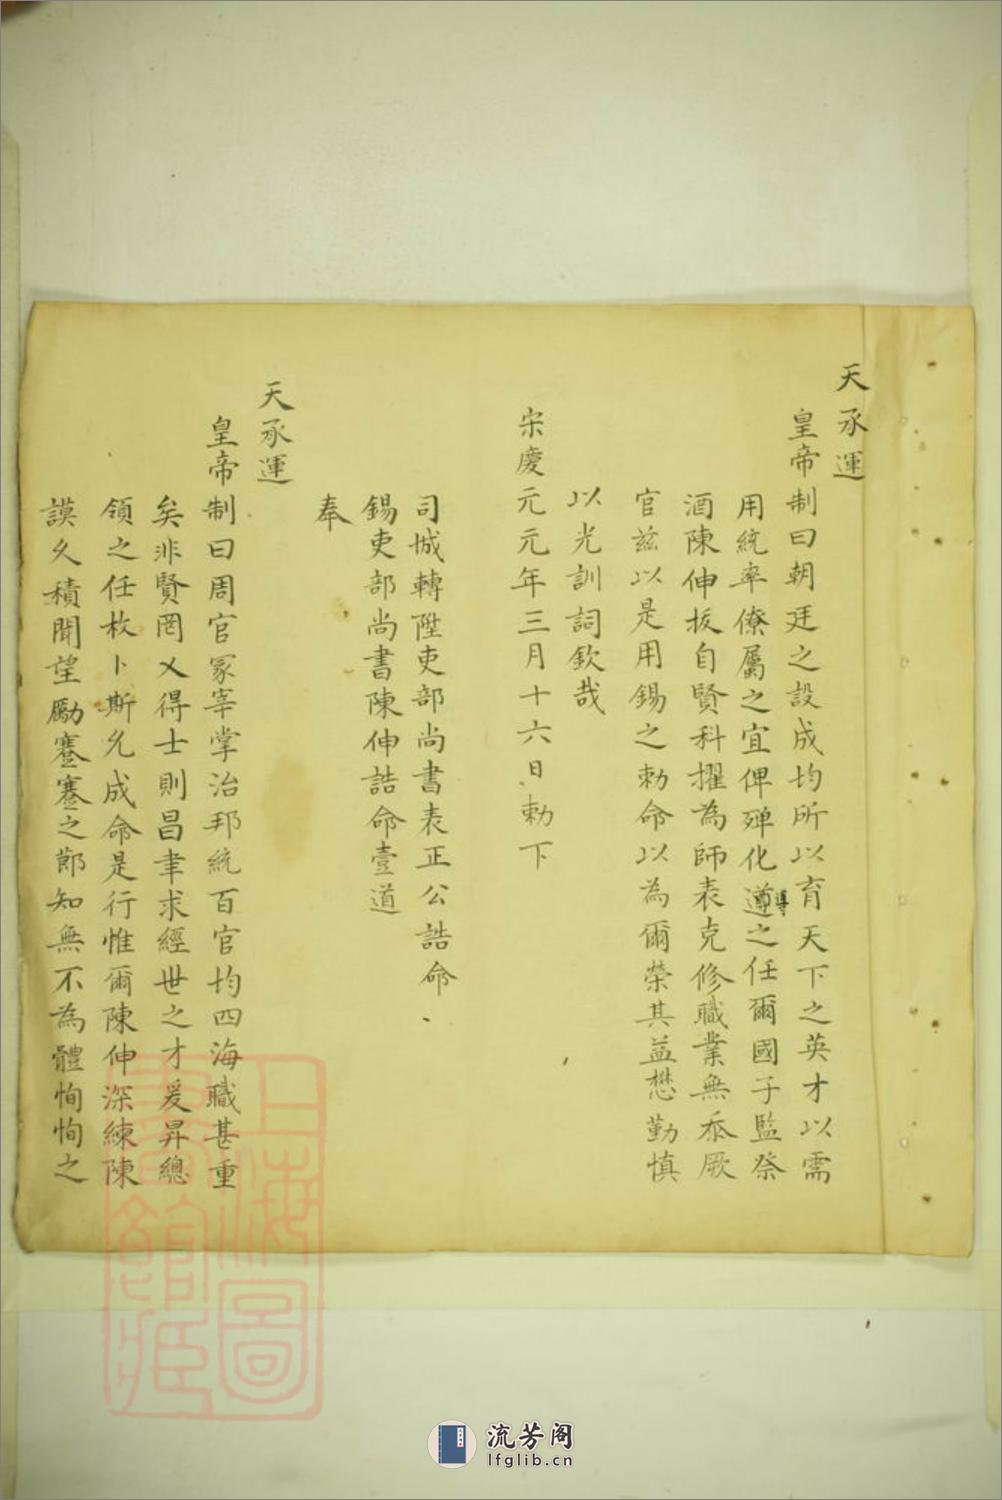 天承運
皇帝制曰朝廷之設成均所以育天下之英才以需
用統率僚屬之宜俾殫化遵導之任爾國子監祭
酒陳伸拔自賢科擢為師表克修職業無忝厥
官茲以是用錫之勅命以為爾榮其益懋勤慎
以光訓詞欽哉
宋慶元元年三月十六日勅下
司城轉陞吏部尚書表正公誥命
錫吏部尚書陳伸誥命壹道
奉
天承運
皇帝制曰周官冢宰掌治邦統百官均四海職甚重
矣非賢罔乂得士則昌聿求經世之才爰昇總
領之任枚卜斯允成命是行惟爾陳伸深練陳
謨久積聞望勵蹇蹇之節知無不為體恂恂之
上海圖書館藏
流芳阁
lfglib.cn